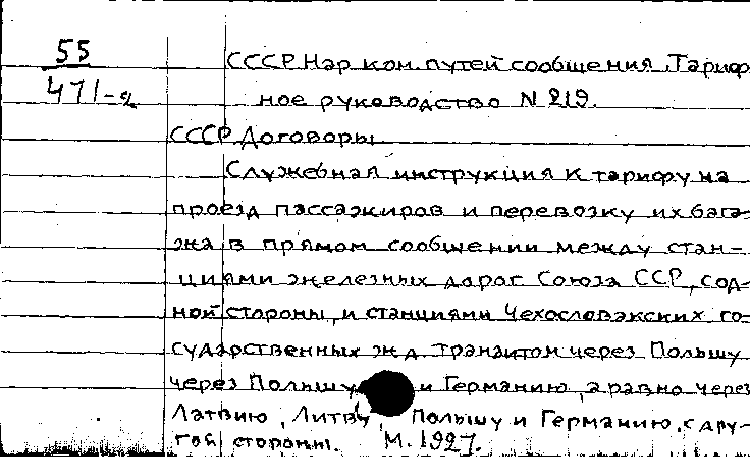 55
471-2
СССР. Нар. ком. путей сообщения. Тариф-
ное руководство N 219.
СССР. Договоры
Служебная инструкция к тарифу на
проезд пассажиров и перевозку их бага-
жа в прямом сообщении между стан-
циями железных дорог Союза ССР, с од-
ной стороны, и станциями Чехословакских го-
сударственных ж д. транзитом через Польшу
через Польшу и Германию, а равно через
Латвию, Литву, Польшу и Германию, с дру-
гой стороны. М. 1927.